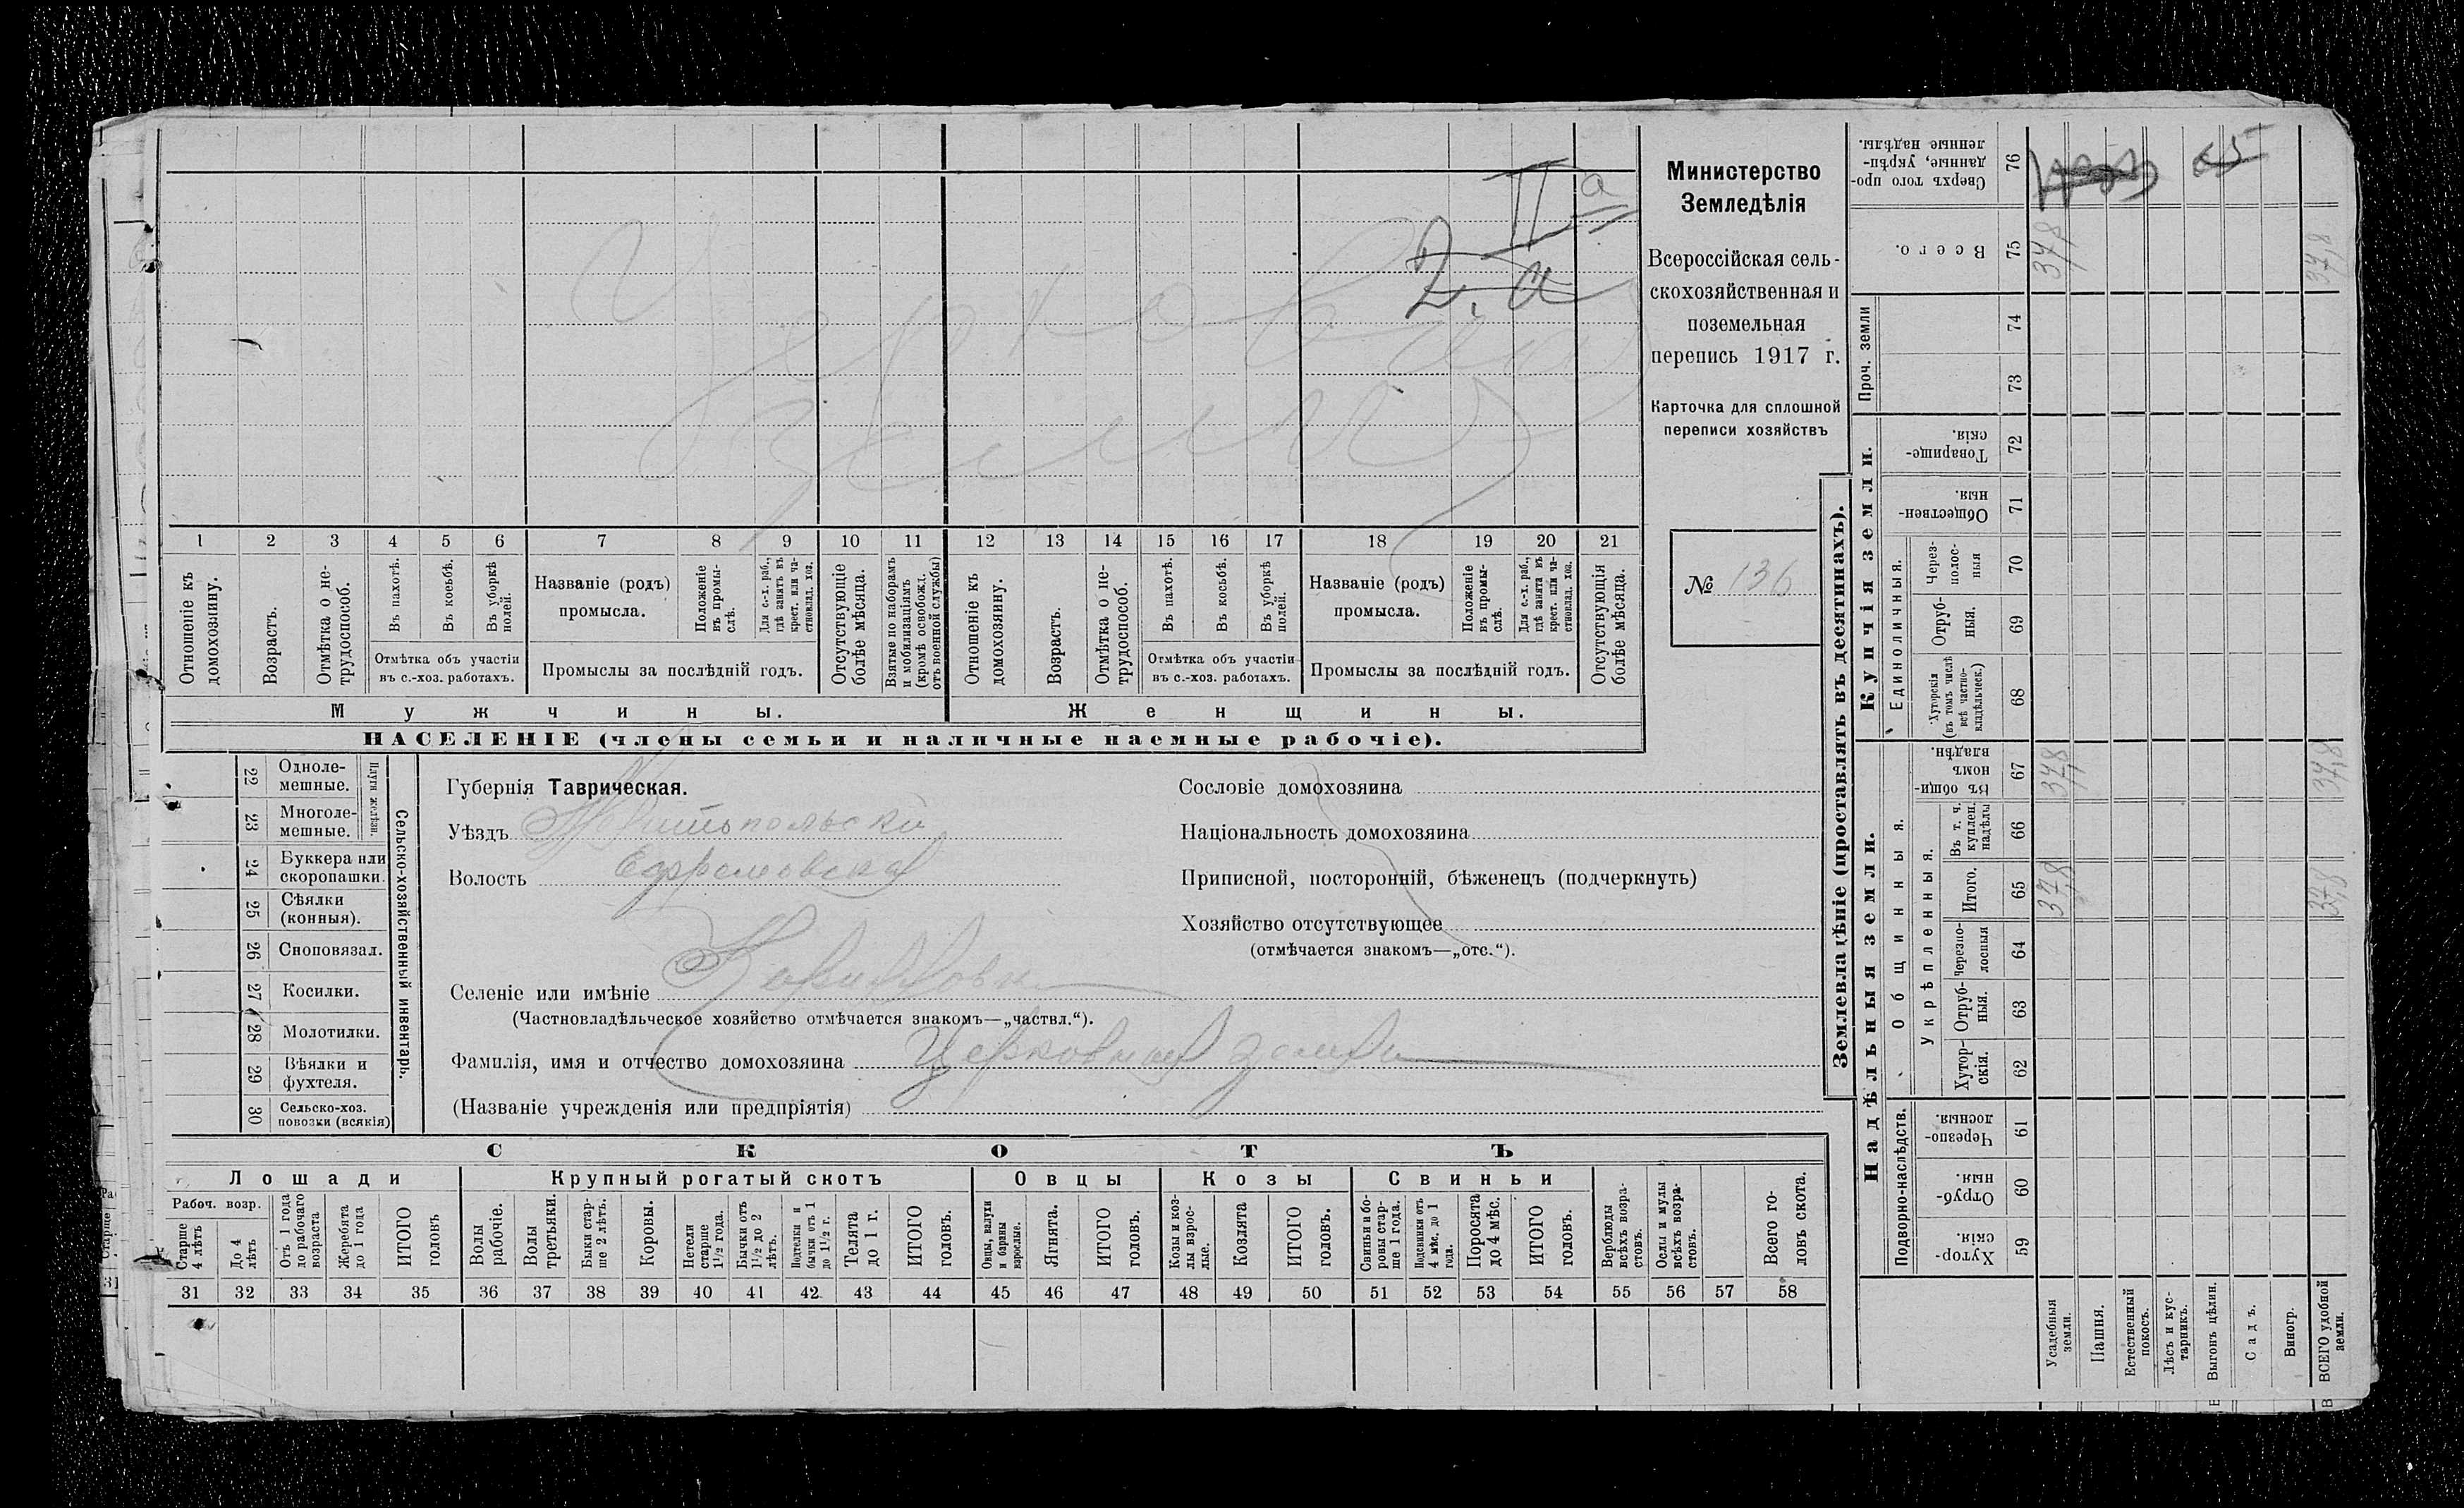 II а
2. а
Церковная
земля
1 2 3 4 5 6 7 8 9 10 11 12 13 14 15 16 17 18 19 20 21
Отношеніе къ домохозяину.
Возрастъ.
Отмѣтка о не-трудоспособ.
Въ пахотѣ.
Въ косьбѣ.
Въ уборкѣ полей.
Отмѣтка объ участіи
въ с.-хоз. работахъ.
Названіе (родъ)
промысла.
Положеніе въ промы-слѣ.
Для с.-х. раб., гдѣ занятъ въ крест. или ча-стновлад. хоз.
Промыслы за послѣдній годъ.
Отсутствующіе болѣе мѣсяца.
Взятые по наборамъ и мобилизаціямъ (кромѣ освобожд. отъ военной службы)
Отношеніе къ домохозяину.
Возрастъ.
Отмѣтка о не-трудоспособ.
Въ пахотѣ.
Въ косьбѣ.
Въ уборкѣ полей.
Отмѣтка объ участіи
въ с.-хоз. работахъ.
Названіе (родъ)
промысла.
Положеніе въ промы-слѣ.
Для с.-х. раб., гдѣ занята въ крест. или ча-стновлад. хоз.
Промыслы за послѣдній годъ.
Отсутствующія болѣе мѣсяца.
Мужчины.
Женщины.
НАСЕЛЕНІЕ (члены семьи и наличные наемные рабочіе).
Министерство
Земледѣлія
Всероссійская сель-
скохозяйственная и
поземельная
перепись 1917 г.
Карточка для сплошной
переписи хозяйствъ
№ 136
22 Одноле-мешные.
23 Многоле-мешные.
Плуги желѣзн.
24 Буккера или скоропашки.
25 Сѣялки (конныя).
26 Сноповязал.
27 Косилки.
28 Молотилки.
29 Вѣялки и фухтеля.
30 Сельско-хоз. повозки (всякія)
Сельско-хозяйственный инвентарь.
Губернія Таврическая.
Уѣздъ Мелитопольскій
Волость Ефремовская
Селеніе или имѣніе
(Частновладѣльческое хозяйство отмѣчается знакомъ—„частвл.“).
Фамилія, имя и отчество домохозяина Церковная земля
(Названіе учрежденія или предпріятія)
Сословіе домохозяина
Національность домохозяина
Приписной, посторонній, бѣженецъ (подчеркнуть)
Хозяйство отсутствующее
(отмѣчается знакомъ—„отс.“).
СКОТЪ
Лошади
Крупный рогатый скотъ
Овцы
Козы
Свиньи
Рабоч. возр.
Старше 4 лѣтъ
До 4 лѣтъ
Отъ 1 года до рабочаго возраста
Жеребята до 1 года
ИТОГО головъ
Волы рабочіе.
Волы третьяки.
Быки стар-ше 2 лѣтъ.
Коровы.
Нетели старше 1½ года.
Бычки отъ 1½ до 2 лѣтъ.
Подтелки и бычки отъ 1 до 1½ г.
Телята до 1 г.
ИТОГО головъ.
Овцы, валухи и бараны взрослые.
Ягнята.
ИТОГО головъ.
Козы и коз-лы взрос-лые.
Козлята
ИТОГО головъ.
Свиньи и бо-ровы стар-ше 1 года.
Подсвинки отъ 4 мѣс. до 1 года.
Поросята до 4 мѣс.
ИТОГО головъ.
Верблюды всѣхъ возра-стовъ.
Ослы и мулы всѣхъ возра-стовъ.
Всего го-ловъ скота.
31 32 33 34 35 36 37 38 39 40 41 42 43 44 45 46 47 48 49 50 51 52 53 54 55 56 57 58
Землевладѣніе (проставлять въ десятинахъ).
Надѣльныя земли.
Купчія земли.
Проч. земли
Подворно-наслѣдств.
Общинныя.
Укрѣпленныя.
Единоличныя.
Хутор-скія. 59
Отруб-ныя. 60
Черезпо-лосныя. 61
Хутор-скія. 62
Отруб-ныя. 63
Черезпо-лосныя 64
Итого. 65 37,8 37,8
Въ т. ч. куплен. надѣлы 66
Въ общи-номъ владѣн. 67 37,8 37,8
Хуторскія (въ томъ числѣ всѣ частно-владѣльческ.) 68
Отруб-ныя. 69
Через-полос-ныя 70
Обществен-ныя. 71
Товарище-скія. 72
73
74
Всего. 75 37,8 37,8
Сверхъ того про-данные, укрѣп-ленные надѣлы. 76
65
Усадебныя земли.
Пашня.
Естественный покосъ.
Лѣсъ и кус-тарникъ.
Выгонъ цѣлин.
Садъ.
Виногр.
ВСЕГО удобной земли.